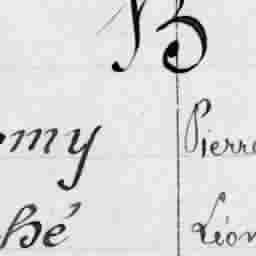 B
omy Pierre
hé Léon